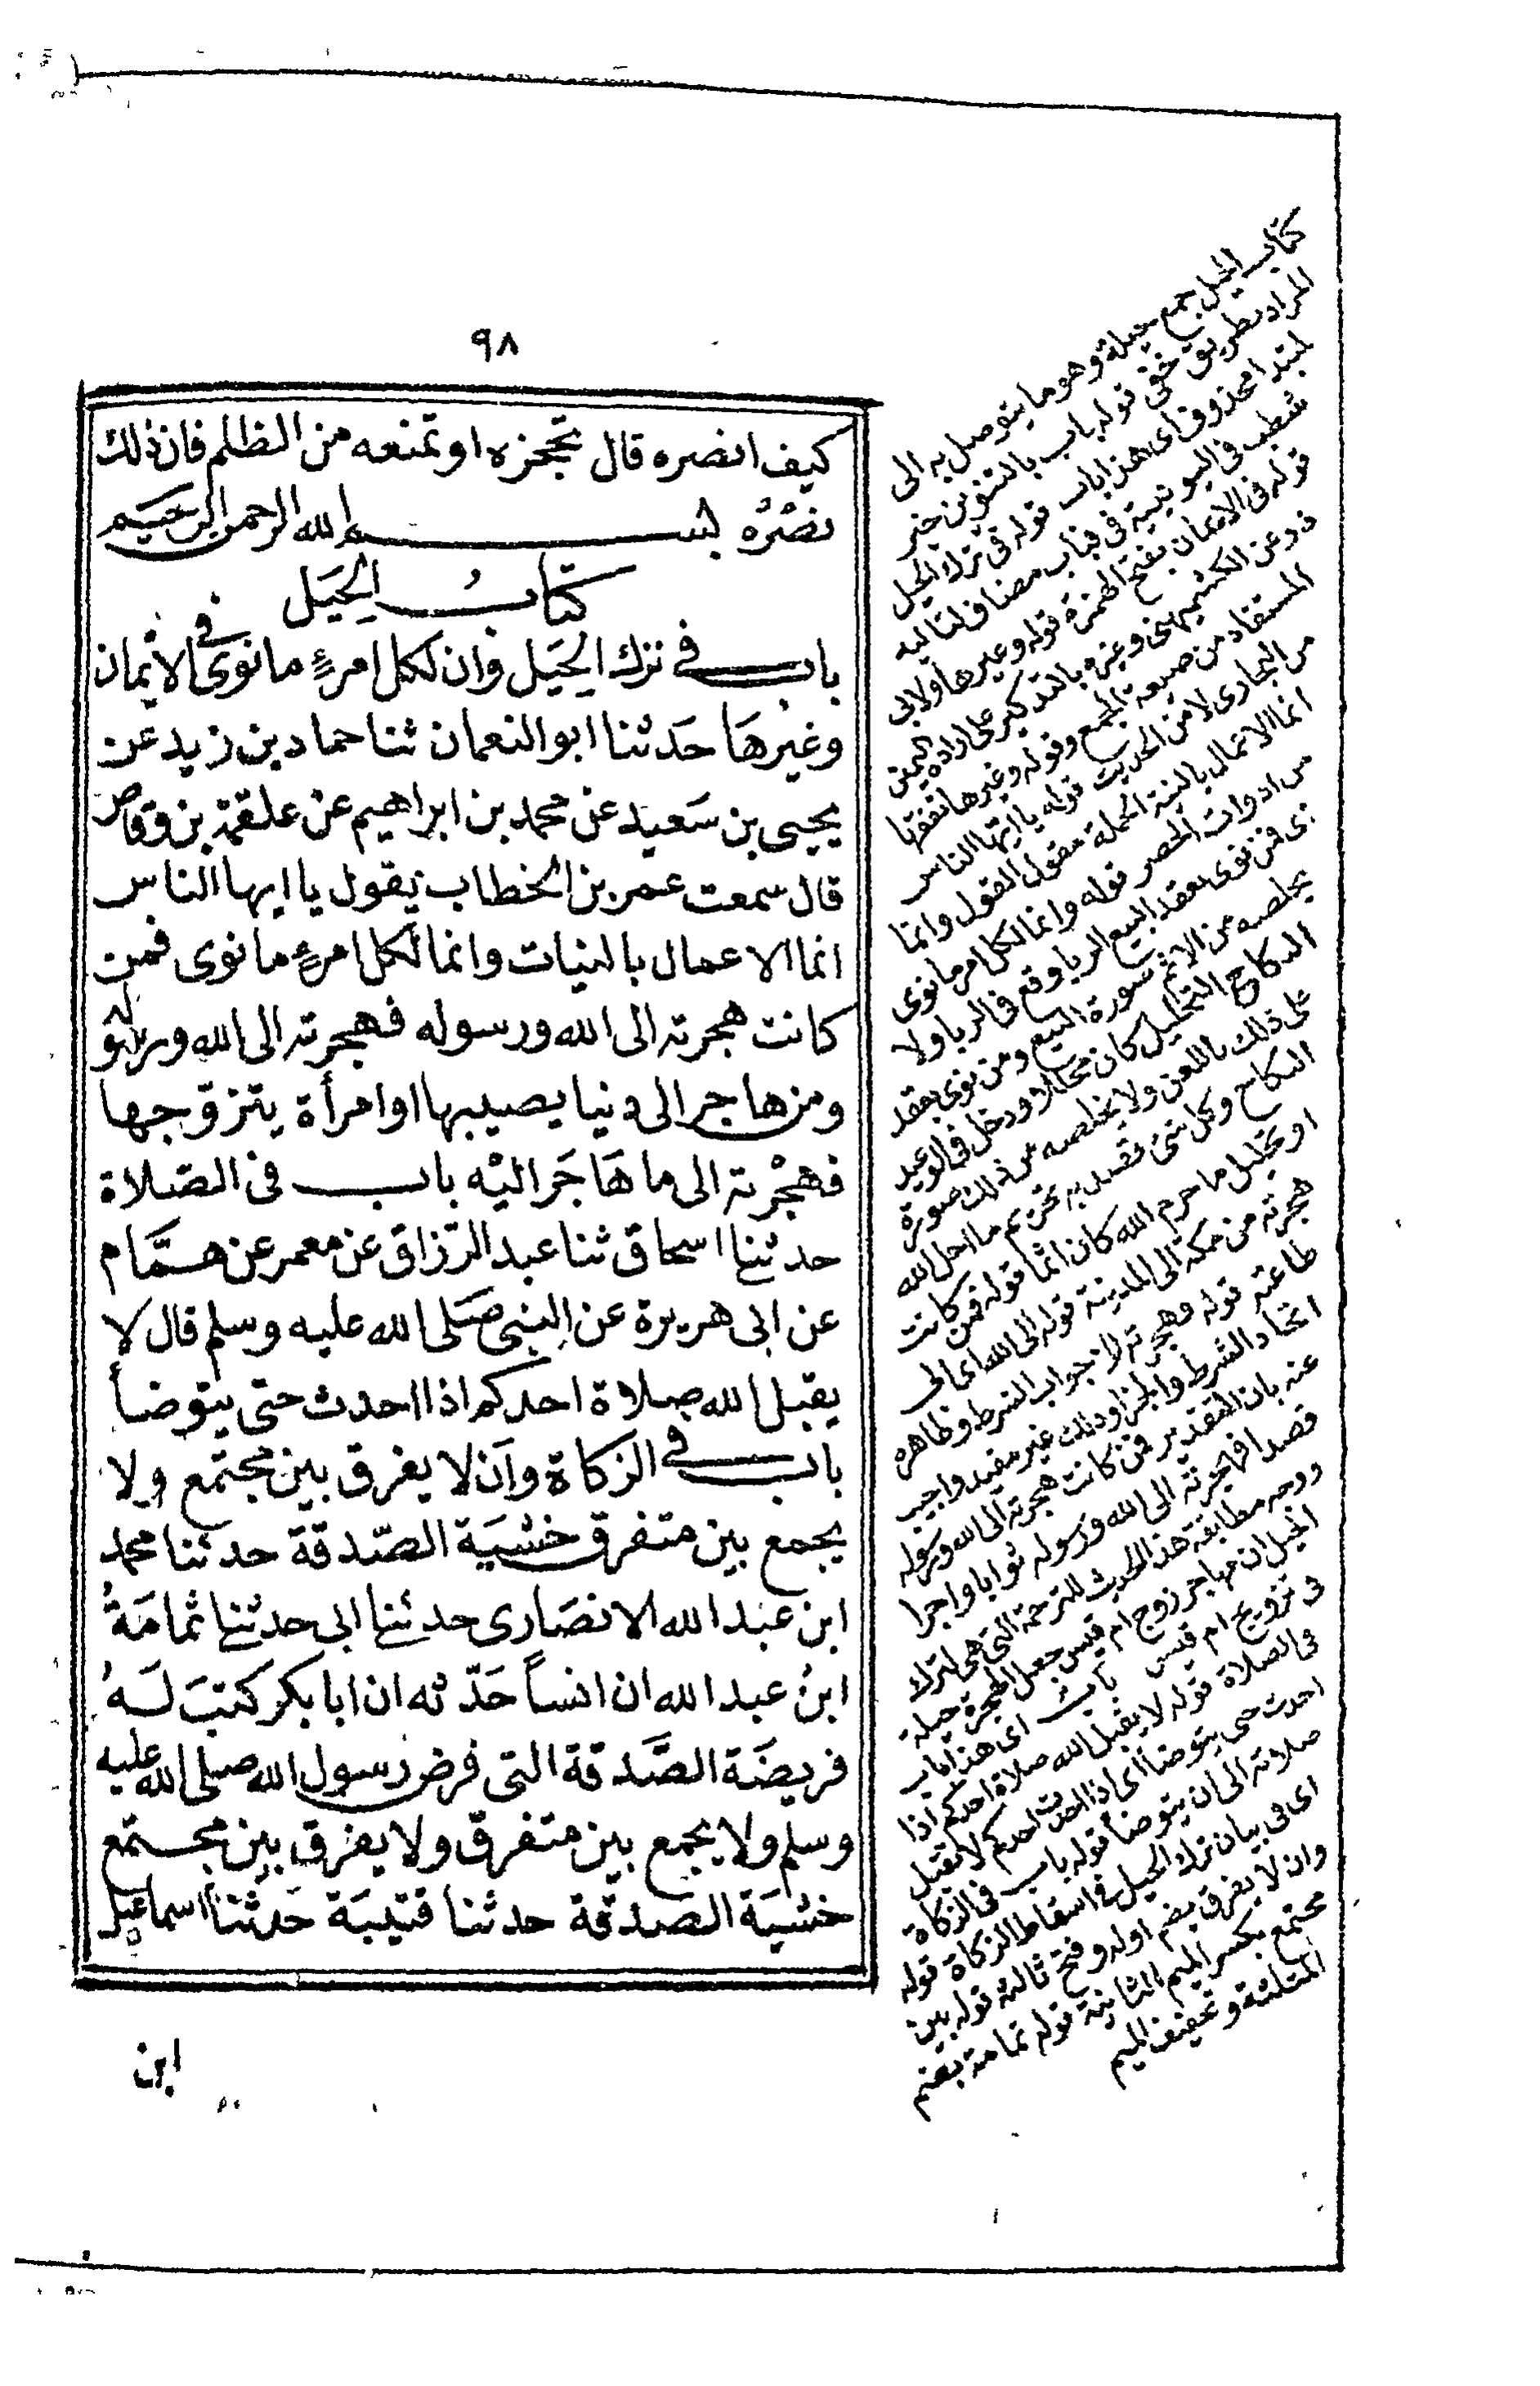 ٩٨
كيف انصره قال تحجزه او تمنعه من الظلم فان ذلك
نصْرُه بسم الله الرحمن الرحيم
كتابُ الحِيَل
باب في ترك الحِيَل وان لكل امرئٍ ما نوى في الأيْمان
وغيرهَا حَدثنا ابو النعمان ثنا حماد بن زيد عن
يحيى بن سَعيد عن محمد بن ابراهيم عن علقمة بن وقاص
قال سمعت عمر بن الخطاب يقول يا ايها الناس
انما الاعمال بالنيات وانما لكل امرئٍ ما نوى فمن
كانت هجرته الى الله ورسوله فهجرته الى الله ورسوله
ومن هاجر الى دنيا يصيبها او امرأة يتزوّجها
فهجْرته الى ما هَا جَر اليْه باب في الصّلاة
حدثنا اسحاق ثنا عبد الرّزاق عن معمر عن همَّام
عن ابى هريرة عن النبى صَلى الله عليه وسلم قال لا
يقبل الله صلاة احدكم اذا احدث حتى يتوضأ
باب في الزكاة وَأن لا يفرق بين مجتمع ولا
يجمع بين متفرق خشيَة الصّدقة حدثنا محمد
ابن عَبد الله الانصَارى حدثنا ابى حدثنا ثمامَةُ
ابنُ عبد الله ان انساً حَدّثه ان ابا بكر كتبَ لَهُ
فريضَة الصَّدقة التى فرض رسول الله صلى الله عليه
وسلم ولا يجمع بين متفرق ولا يفرق بين مجتمع
خشيَة الصدقة حدثنا قتيبَة حَدثنا اسماعيل
ابن
كتاب الحيل جمع حيلة وهو ما يتوصل به الى
المراد بطريق خفى قوله باب بالتنوين خبر
لمبتدا محذوف اى هذا باب قوله فى ترك الحيل
قوله فى الايمان بفتح الهمزة قوله وغيرها ولابى
ذر عن الكشميهنى وغيره بالتذكير على ارادة اليمين
المستفاد من صيغة الجمع وقوله وغيرها تفقها
من البخارى لا من الحديث قوله يا ايها الناس
انما الاعمال بالنية الجملة مقول القول وانما
من ادوات الحصر قوله وانما لكل امرئ ما نوى
فمن نوى بعقد البيع الربا وقع فى الربا ولا
يخلصه من الاثم صورة البيع ومن نوى بعقد
النكاح التحليل كان محللا ودخل فى الوعيد
على ذلك باللعن ولا يخلصه من ذلك صورة
النكاح وكل شئ قصد به تحريم ما احل الله
او تحليل ما حرم الله كان اثما قوله فمن كانت
هجرته من مكة الى المدينة قوله الى الله اى الى
طاعته قوله فهجرته جواب الشرط وظاهره
اتحاد الشرط والجزا وذلك غير مفيد واجيب
عنه بان التقدير فمن كانت هجرته الى الله ورسوله
قصدا فهجرته الى الله ورسوله ثوابا واجرا
ووجه مطابقة هذا الحديث للترجمة التى هى لترك
الحيل ان مهاجر ام قيس جعل الهجرة حيلة
فى تزويج ام قيس باب اى هذا باب
فى الصلاة قوله لا يقبل الله صلاة احدكم اذا
احدث حتى يتوضا اى اذا احدث احدكم لا تقبل
صلاته الى ان يتوضأ قوله باب فى الزكاة
اى فى بيان ترك الحيل فى اسقاط الزكاة قوله
وان لا يفرق بضم اوله وفتح ثالثه قوله بين
مجتمع بكسر الميم الثانية قوله ثمامة بضم
المثلثة وتخفيف الميم